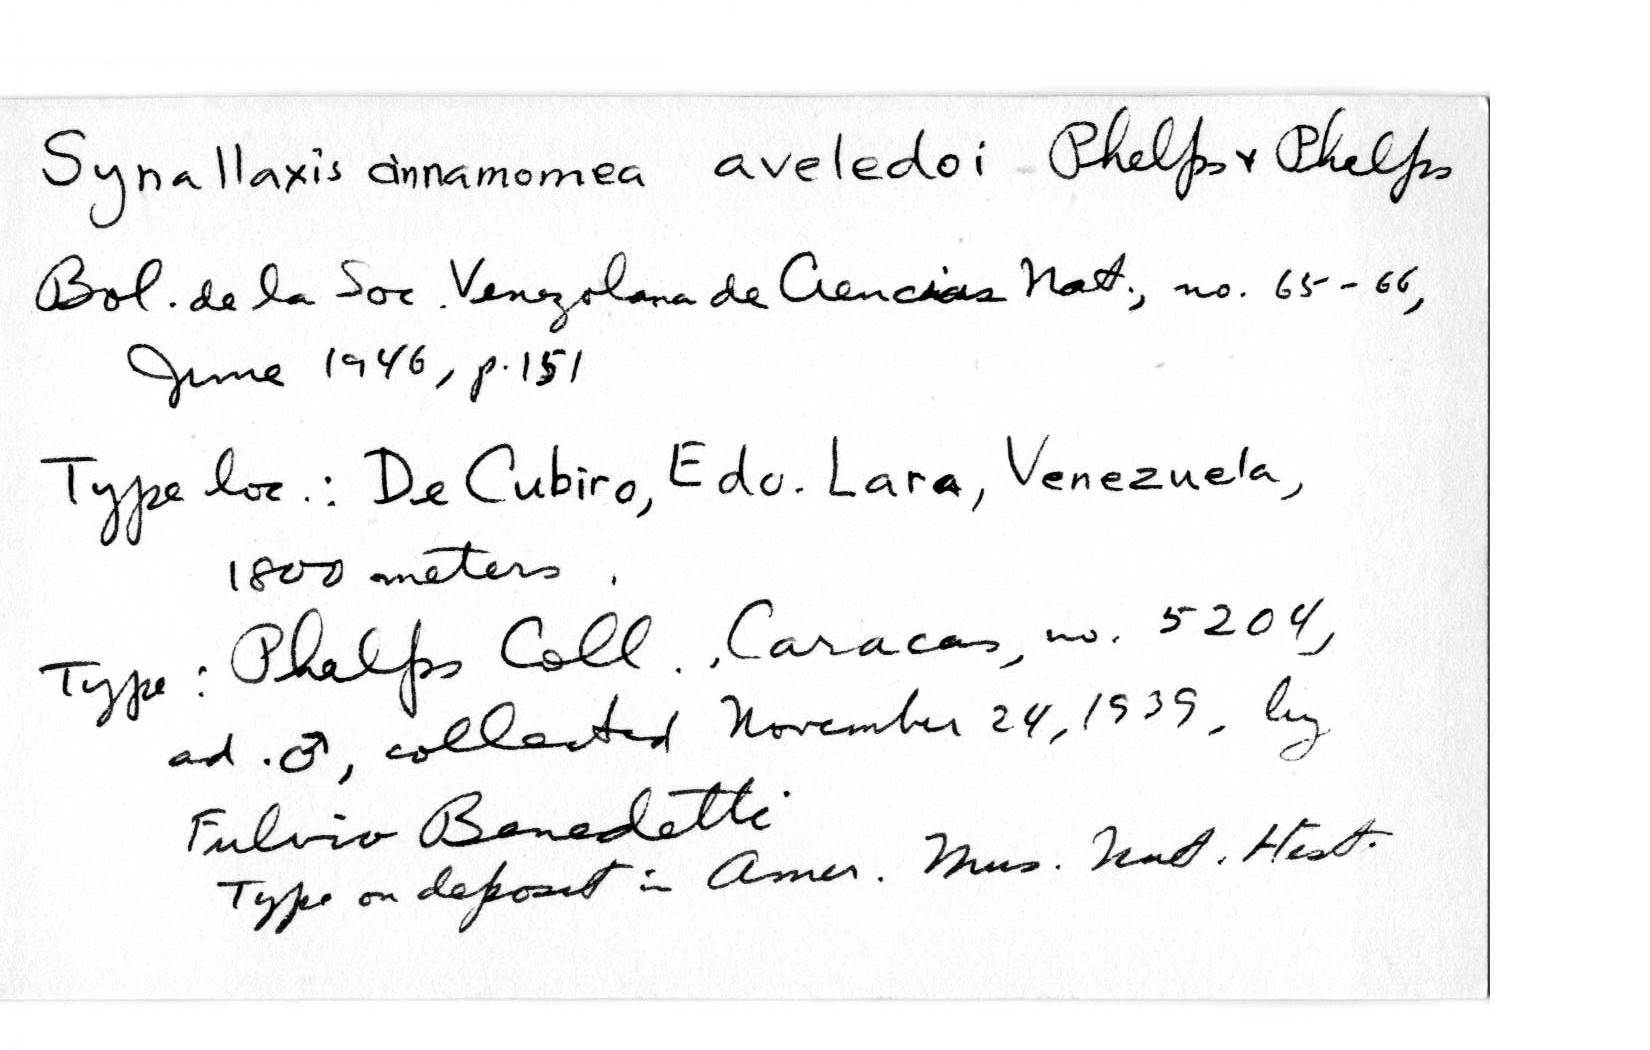 Synallaxis cinnamomea aveledoi Phelps & Phelps
Bol. de la Soc. Venezolana de Ciencias Nat., no. 65-66,
June 1946, p. 151
Type loc.: De Cubiro, Edo. Lara, Venezuela,
1800 meters.
Type: Phelps Coll., Caracas, no. 5204,
ad. ♂, collected November 24, 1939, by
Fulvio Benedetti
Type on deposit in Amer. Mus. Nat. Hist.